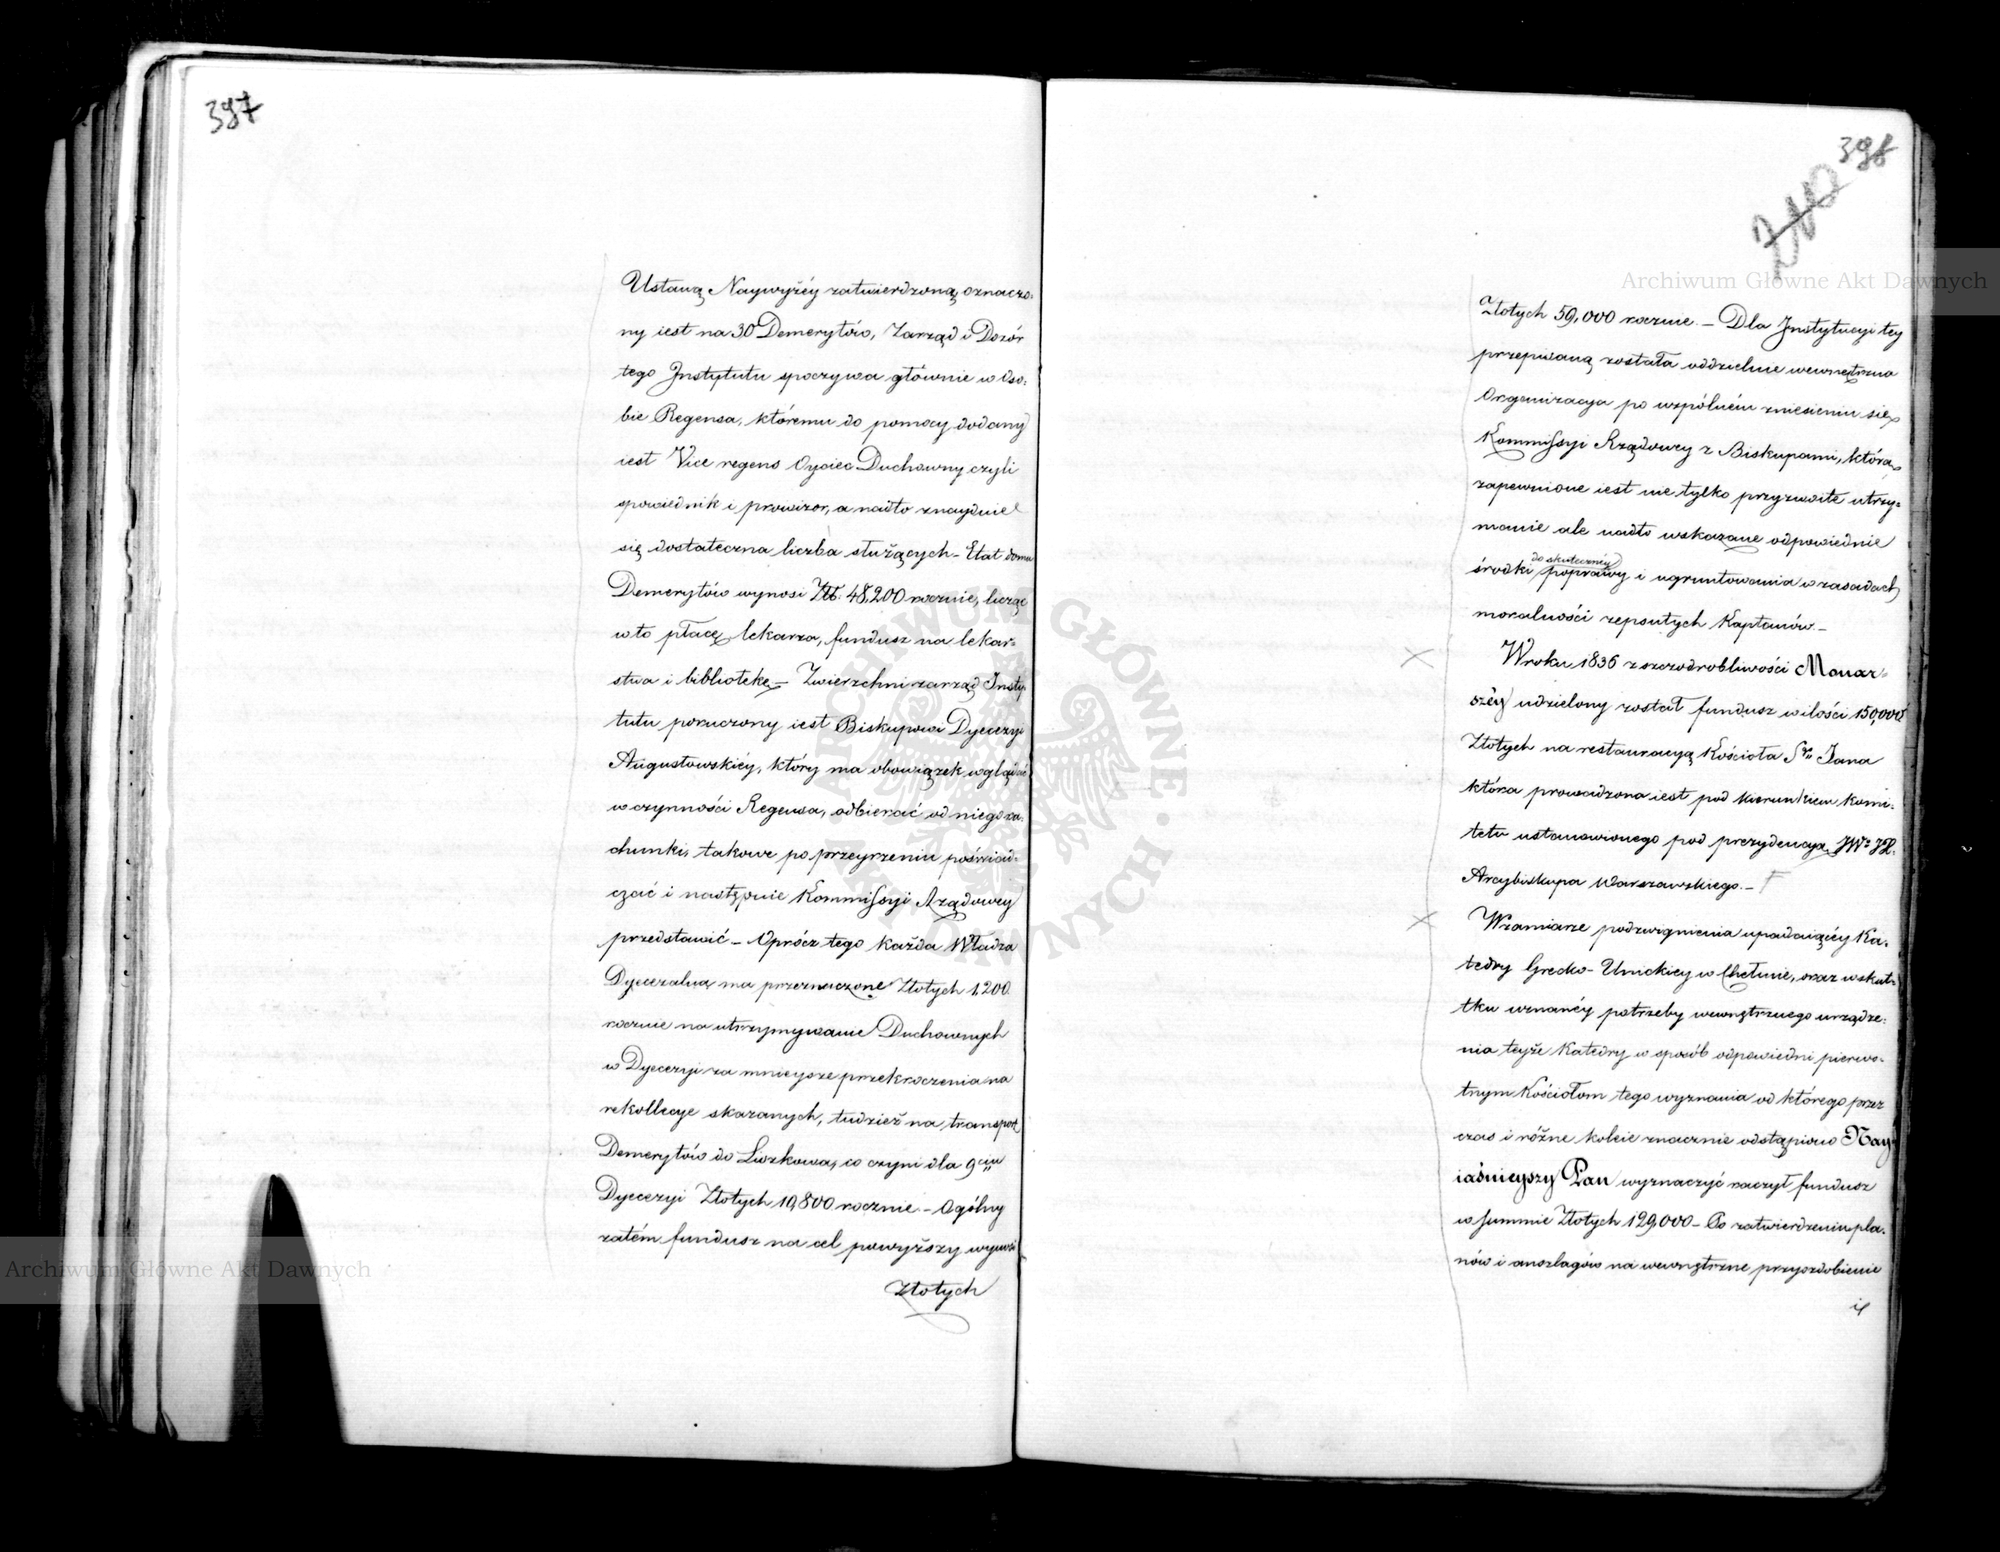 397
Ustawą Naywyżéy zatwierdzoną oznaczo-
ny iest na 30 Demerytów, Zarząd i Dozór
tego Instytutu spoczywa głównie w Oso-
bie Regensa, któremu do pomocy dodany
iest Vice regens Oyciec Duchowny czyli
spowiednik i prowizor, a nadto znayduie
się dostateczna liczba służących – Etat domu
Demerytów wynosi Złt: 48,200 rocznie, licząc
w to płacę lekarza, fundusz na lekar-
stwa i bibliotekę – Zwierzchni zarząd Insty-
tutu poruczony iest Biskupowi Dyecezyi
Augustowskiéy, który ma obowiązek wglądać
w czynności Regensa, odbierać od niego ra-
chunki, takowe po przeyrzeniu poświad-
czać i następnie Kommissyi Rządowey
przedstawić – Oprócz tego każda Władza
Dyecezalna ma przeznaczone Złotych 1,200
rocznie na utrzymywanie Duchownych
w Dyecezyi za mnieysze przekroczenia na
rekollecye skazanych, tudzież na transport
Demerytów do Liszkowa, co czyni dla 9ciu
Dyecezyi Złotych 10,800 rocznie – Ogólny
zatém fundusz na cel powyższy wynosi
Złotych
398
Złotych 59,000 rocznie. – Dla Instytucyi tey
przepisaną została oddzielnie wewnętrzna
Organizacya po wspólném zniesieniu się
Kommissyi Rządowey z Biskupami, którą
zapewnione iest nie tylko przyzwoite utrzy-
manie ale nadto wskazane odpowiednie
do skuteczney
środki poprawy i ugruntowania w zasadach
moralności zepsutych Kapłanów. –
W roku 1836 z szczodrobliwości Monar-
széy udzielony został fundusz w ilości 150,000
Złotych na restauracyą Kościoła Sgo Jana
która prowadzona iest pod kierunkiem Komi-
tetu ustanowionego pod prezydencyą JWo JX.
Arcybiskupa Warszawskiego. –
W zamiarze podzwignienia upadaiącéy Ka-
tedry Grecko-Unickiey w Chełmie, oraz w skut-
tku uznanéy potrzeby wewnętrznego urządze-
nia teyże Katedry w sposób odpowiedni pierwo-
tnym Kościołom tego wyznania od którego przez
czas i różne koleie znacznie odstąpiono Nay-
iaśnieyszy Pan wyznaczyć raczył fundusz
w summie Złotych 129,000 – Po zatwierdzeniu pla-
nów i anszlagów na wewnętrzne przyozdobienie
i
Archiwum Główne Akt Dawnych
Archiwum Główne Akt Dawnych
ARCHIWUM GŁÓWNE AKT DAWNYCH